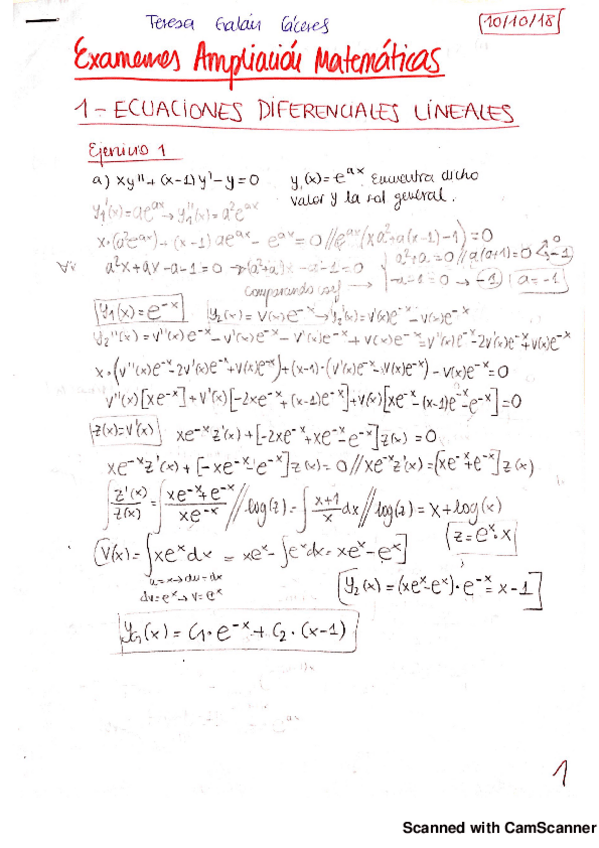 Teresa Galán Cáceres
10/10/18
Examenes Ampliación Matemáticas
1- ECUACIONES DIFERENCIALES LINEALES
Ejercicio 1
a) xy''+(x-1)y'-y=0 y₁(x)=e^(ax). Encuentra dicho
valor y la sol general.
y₁'(x)=ae^(ax) → y₁''(x)=a²e^(ax)
x·(a²e^(ax))+(x-1)ae^(ax)-e^(ax)=0 // e^(ax)(xa²+a(x-1)-1)=0
a²x+ax-a-1=0 → (a²+a)x-a-1=0 a²+a=0 // a(a+1)=0 < 0 -1
comparando coef → -a-1=0 → -1 a=-1
y₁(x)=e^(-x) y₂(x)=v(x)e^(-x) → y₂'(x)=v'(x)e^(-x)-v(x)e^(-x)
y₂''(x)=v''(x)e^(-x)-v'(x)e^(-x)-v'(x)e^(-x)+v(x)e^(-x)=v''(x)e^(-x)-2v'(x)e^(-x)+v(x)e^(-x)
x·(v''(x)e^(-x)-2v'(x)e^(-x)+v(x)e^(-x))+(x-1)·(v'(x)e^(-x)-v(x)e^(-x))-v(x)e^(-x)=0
v''(x)[xe^(-x)]+v'(x)[-2xe^(-x)+(x-1)e^(-x)]+v(x)[xe^(-x)-(x-1)e^(-x)-e^(-x)]=0
z(x)=v'(x) xe^(-x)z'(x)+[-2xe^(-x)+xe^(-x)-e^(-x)]z(x)=0
xe^(-x)z'(x)+[-xe^(-x)-e^(-x)]z(x)=0 // xe^(-x)z'(x)=(xe^(-x)+e^(-x))z(x)
∫z'(x)/z(x)=∫(xe^(-x)+e^(-x))/(xe^(-x)) // log(z)=∫(x+1)/x dx // log(z)=x+log(x)
z=e^x·x
v(x)=∫xe^x dx=xe^x-∫e^x dx=xe^x-e^x
u=x→du=dx
dv=e^x→v=e^x
y₂(x)=(xe^x-e^x)·e^(-x)=x-1
y_G(x)=C₁·e^(-x)+C₂·(x-1)
1
Scanned with CamScanner